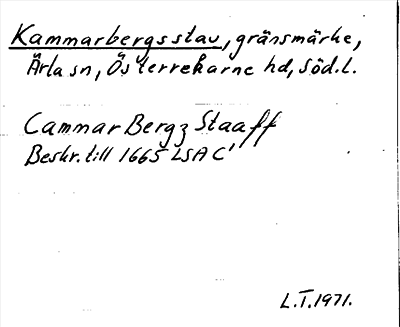 Kammarbergsstav, gränsmärke,
Ärla sn, Österrekarne hd, Söd.l.
Cammar Bergz Staaff
Beskr. till 1665 LSA C'
L.I.1971.